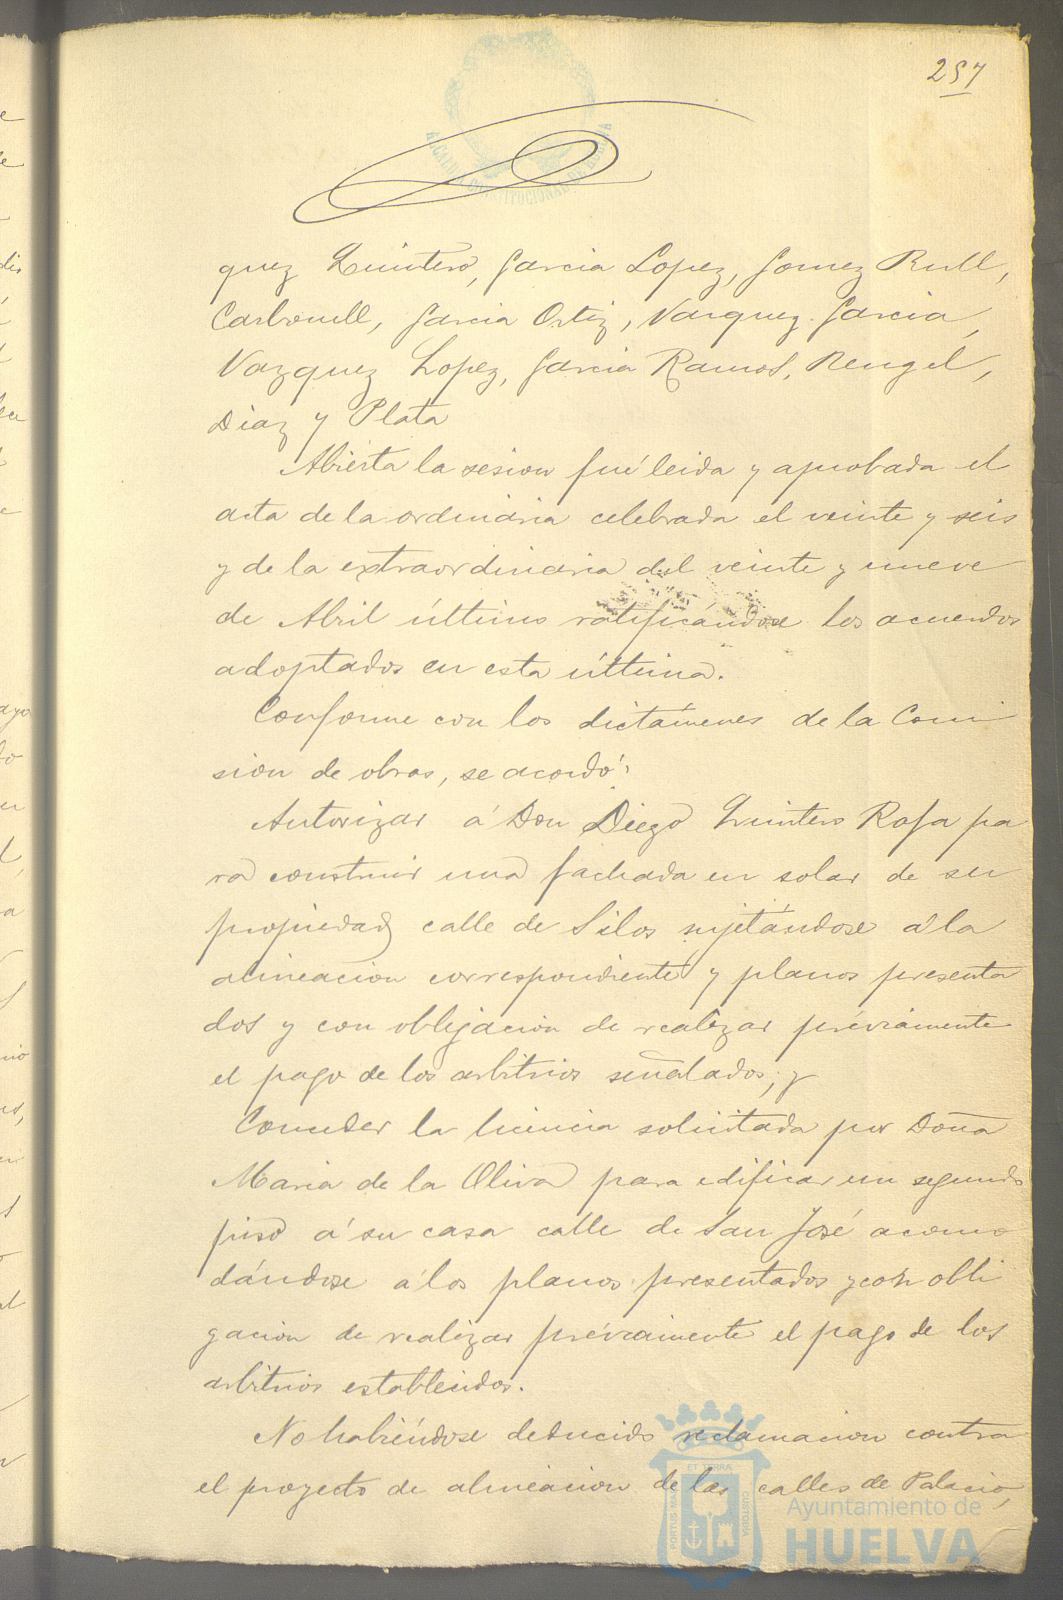 257
quez Quintero, Garcia Lopez, Gomez Rull,
Carbonell, Garcia Ortiz, Vazquez Garcia,
Vazquez Lopez, Garcia Ramos, Rengel,
Diaz y Plata
Abierta la sesion fué leida y aprobada el
acta de la ordinaria celebrada el veinte y seis
y de la extraordinaria del veinte y nueve
de Abril último ratificándose los acuerdos
adoptados en esta última.
Conforme con los dictámenes de la Comi
sion de obras, se acordó:
Autorizar á Don Diego Quintero Rofa pa
ra construir una fachada en solar de su
propiedad calle de Silos sujetándose á la
alineacion correspondiente y planos presenta
dos y con obligacion de realizar préviamente
el pago de los arbitrios señalados; y
Conceder la licencia solicitada por Doña
Maria de la Oliva para edificar un segundo
piso á su casa calle de San José acomo
dándose á los planos presentados y con obli
gacion de realizar préviamente el pago de los
arbitrios establecidos.
No habiéndose deducido reclamacion contra
el proyecto de alineacion de las calles de Palacio,
ET TERRÆ
PORTUS MARIS
CUSTODIA
Ayuntamiento de
HUELVA